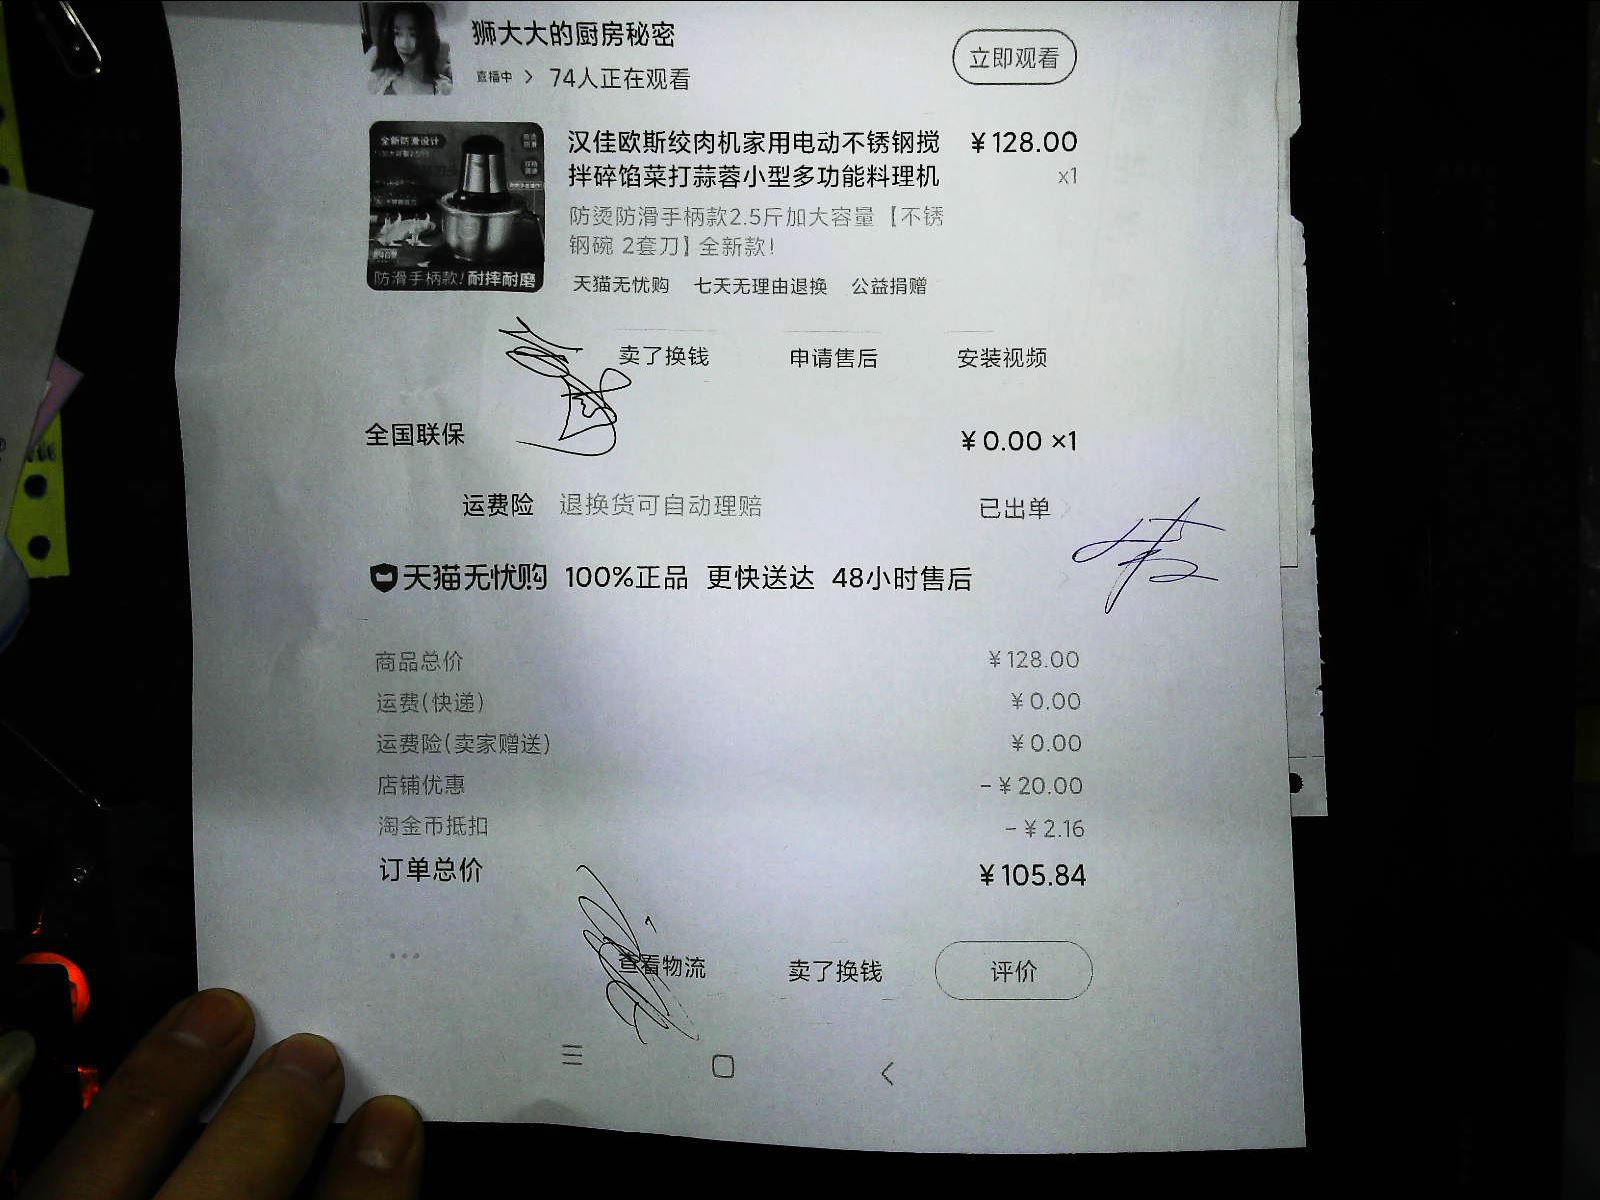 狮大大的厨房秘密
直播中 > 74人正在观看
立即观看
汉佳欧斯绞肉机家用电动不锈钢搅 ¥128.00
拌碎馅菜打蒜蓉小型多功能料理机 x1
防烫防滑手柄款2.5斤加大容量【不锈
钢碗 2套刀】全新款!
全新防滑设计
防滑手柄款!耐摔耐磨
天猫无忧购 七天无理由退换 公益捐赠
卖了换钱 申请售后 安装视频
全国联保 ¥0.00 ×1
运费险 退换货可自动理赔 已出单
天猫无忧购 100%正品 更快送达 48小时售后
商品总价 ¥128.00
运费(快递) ¥0.00
运费险(卖家赠送) ¥0.00
店铺优惠 -¥20.00
淘金币抵扣 -¥2.16
订单总价 ¥105.84
查看物流 卖了换钱 评价